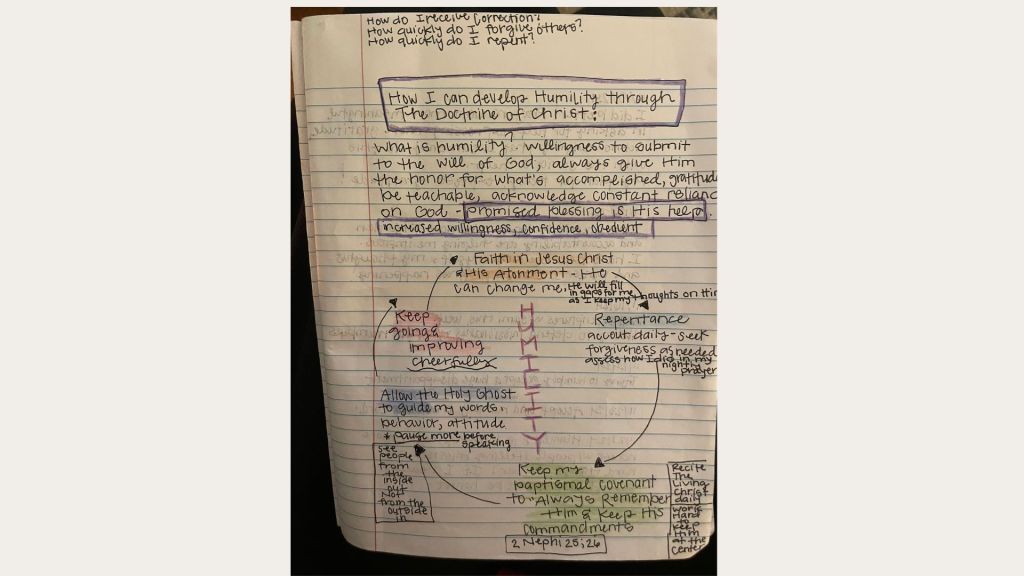 How do I receive correction?
How quickly do I forgive others?
How quickly do I repent?
How I can develop Humility through
The Doctrine of Christ:
What is humility? willingness to submit
to the will of God, always give Him
the honor for what's accomplished, gratitude
be teachable, acknowledge constant relianc
on God - promised blessing is His help,
increased willingness, confidence, obedient
Faith in Jesus Christ
& His Atonment - He
can change me, He will fill
in gaps for me
as I keep my thoughts on Him
Repentance
account daily - seek
forgiveness as needed
assess how I did in my
nightly
prayer
Keep my
baptismal covenant
to "Always Remember
Him & Keep His
commandments
2 Nephi 25:26
Recite
The
Living
Christ
daily
work
Hard
to
keep
Him
at the
center
Allow the Holy Ghost
to guide my words
behavior, attitude
* pause more before
speaking
see
people
from
the
inside
out
Not
from the
outside
in
Keep
going &
improving
cheerfully
HUMILITY